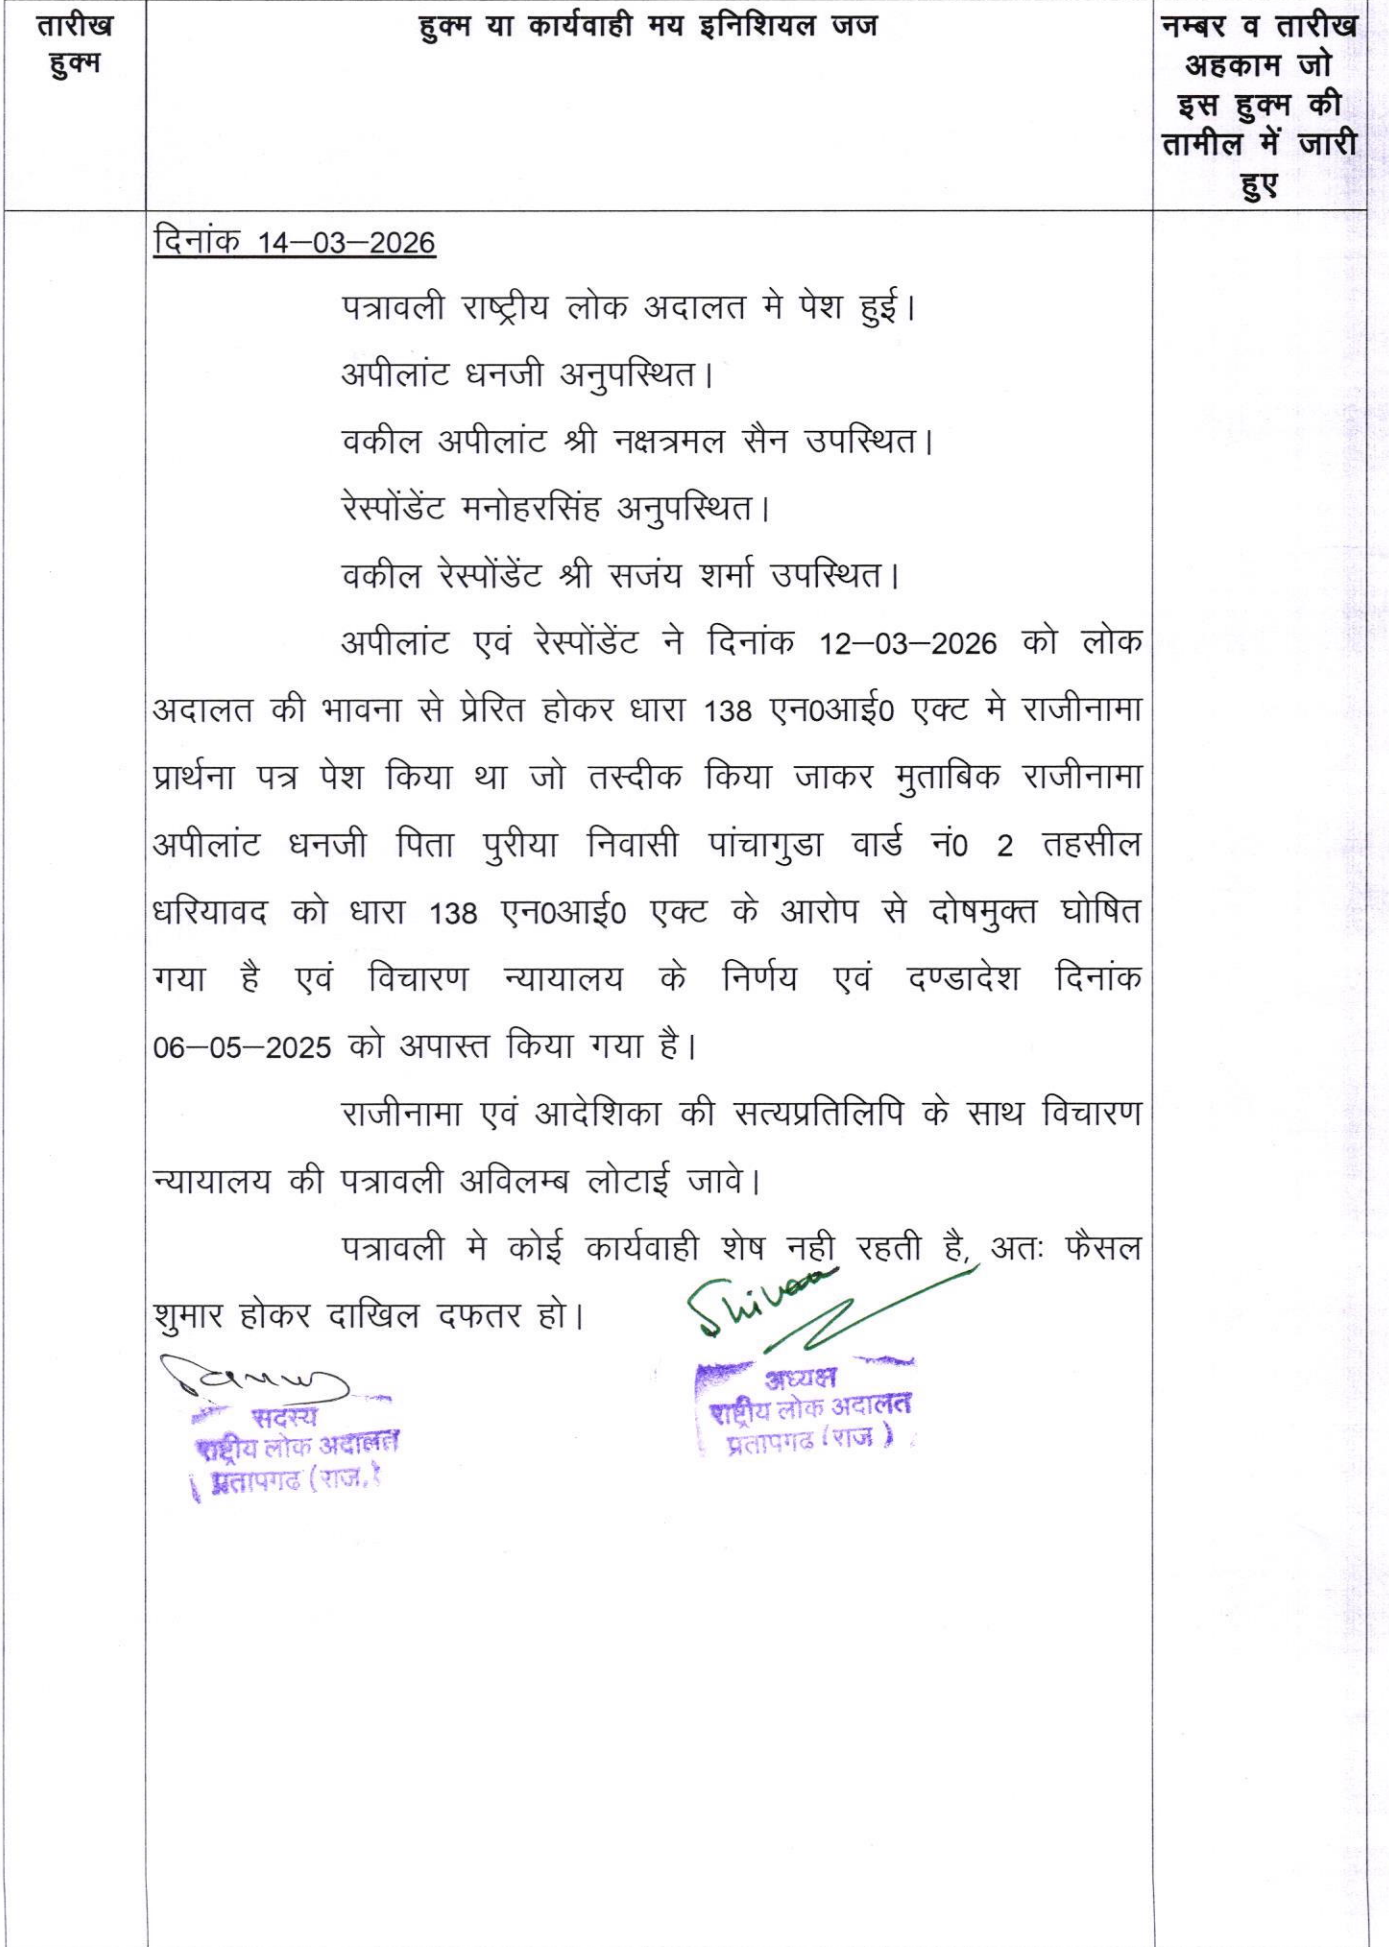 तारीख
हुक्म
हुक्म या कार्यवाही मय इनिशियल जज
नम्बर व तारीख
अहकाम जो
इस हुक्म की
तामील में जारी
हुए
दिनांक 14–03–2026
पत्रावली राष्ट्रीय लोक अदालत मे पेश हुई।
अपीलांट धनजी अनुपस्थित।
वकील अपीलांट श्री नक्षत्रमल सैन उपस्थित।
रेस्पोंडेंट मनोहरसिंह अनुपस्थित।
वकील रेस्पोंडेंट श्री सजंय शर्मा उपस्थित।
अपीलांट एवं रेस्पोंडेंट ने दिनांक 12–03–2026 को लोक
अदालत की भावना से प्रेरित होकर धारा 138 एन0आई0 एक्ट मे राजीनामा
प्रार्थना पत्र पेश किया था जो तस्दीक किया जाकर मुताबिक राजीनामा
अपीलांट धनजी पिता पुरीया निवासी पांचागुडा वार्ड नं0 2 तहसील
धरियावद को धारा 138 एन0आई0 एक्ट के आरोप से दोषमुक्त घोषित
गया है एवं विचारण न्यायालय के निर्णय एवं दण्डादेश दिनांक
06–05–2025 को अपास्त किया गया है।
राजीनामा एवं आदेशिका की सत्यप्रतिलिपि के साथ विचारण
न्यायालय की पत्रावली अविलम्ब लोटाई जावे।
पत्रावली मे कोई कार्यवाही शेष नही रहती है, अतः फैसल
शुमार होकर दाखिल दफतर हो।
सदस्य
राष्ट्रीय लोक अदालत
प्रतापगढ (राज.)
अध्यक्ष
राष्ट्रीय लोक अदालत
प्रतापगढ (राज )